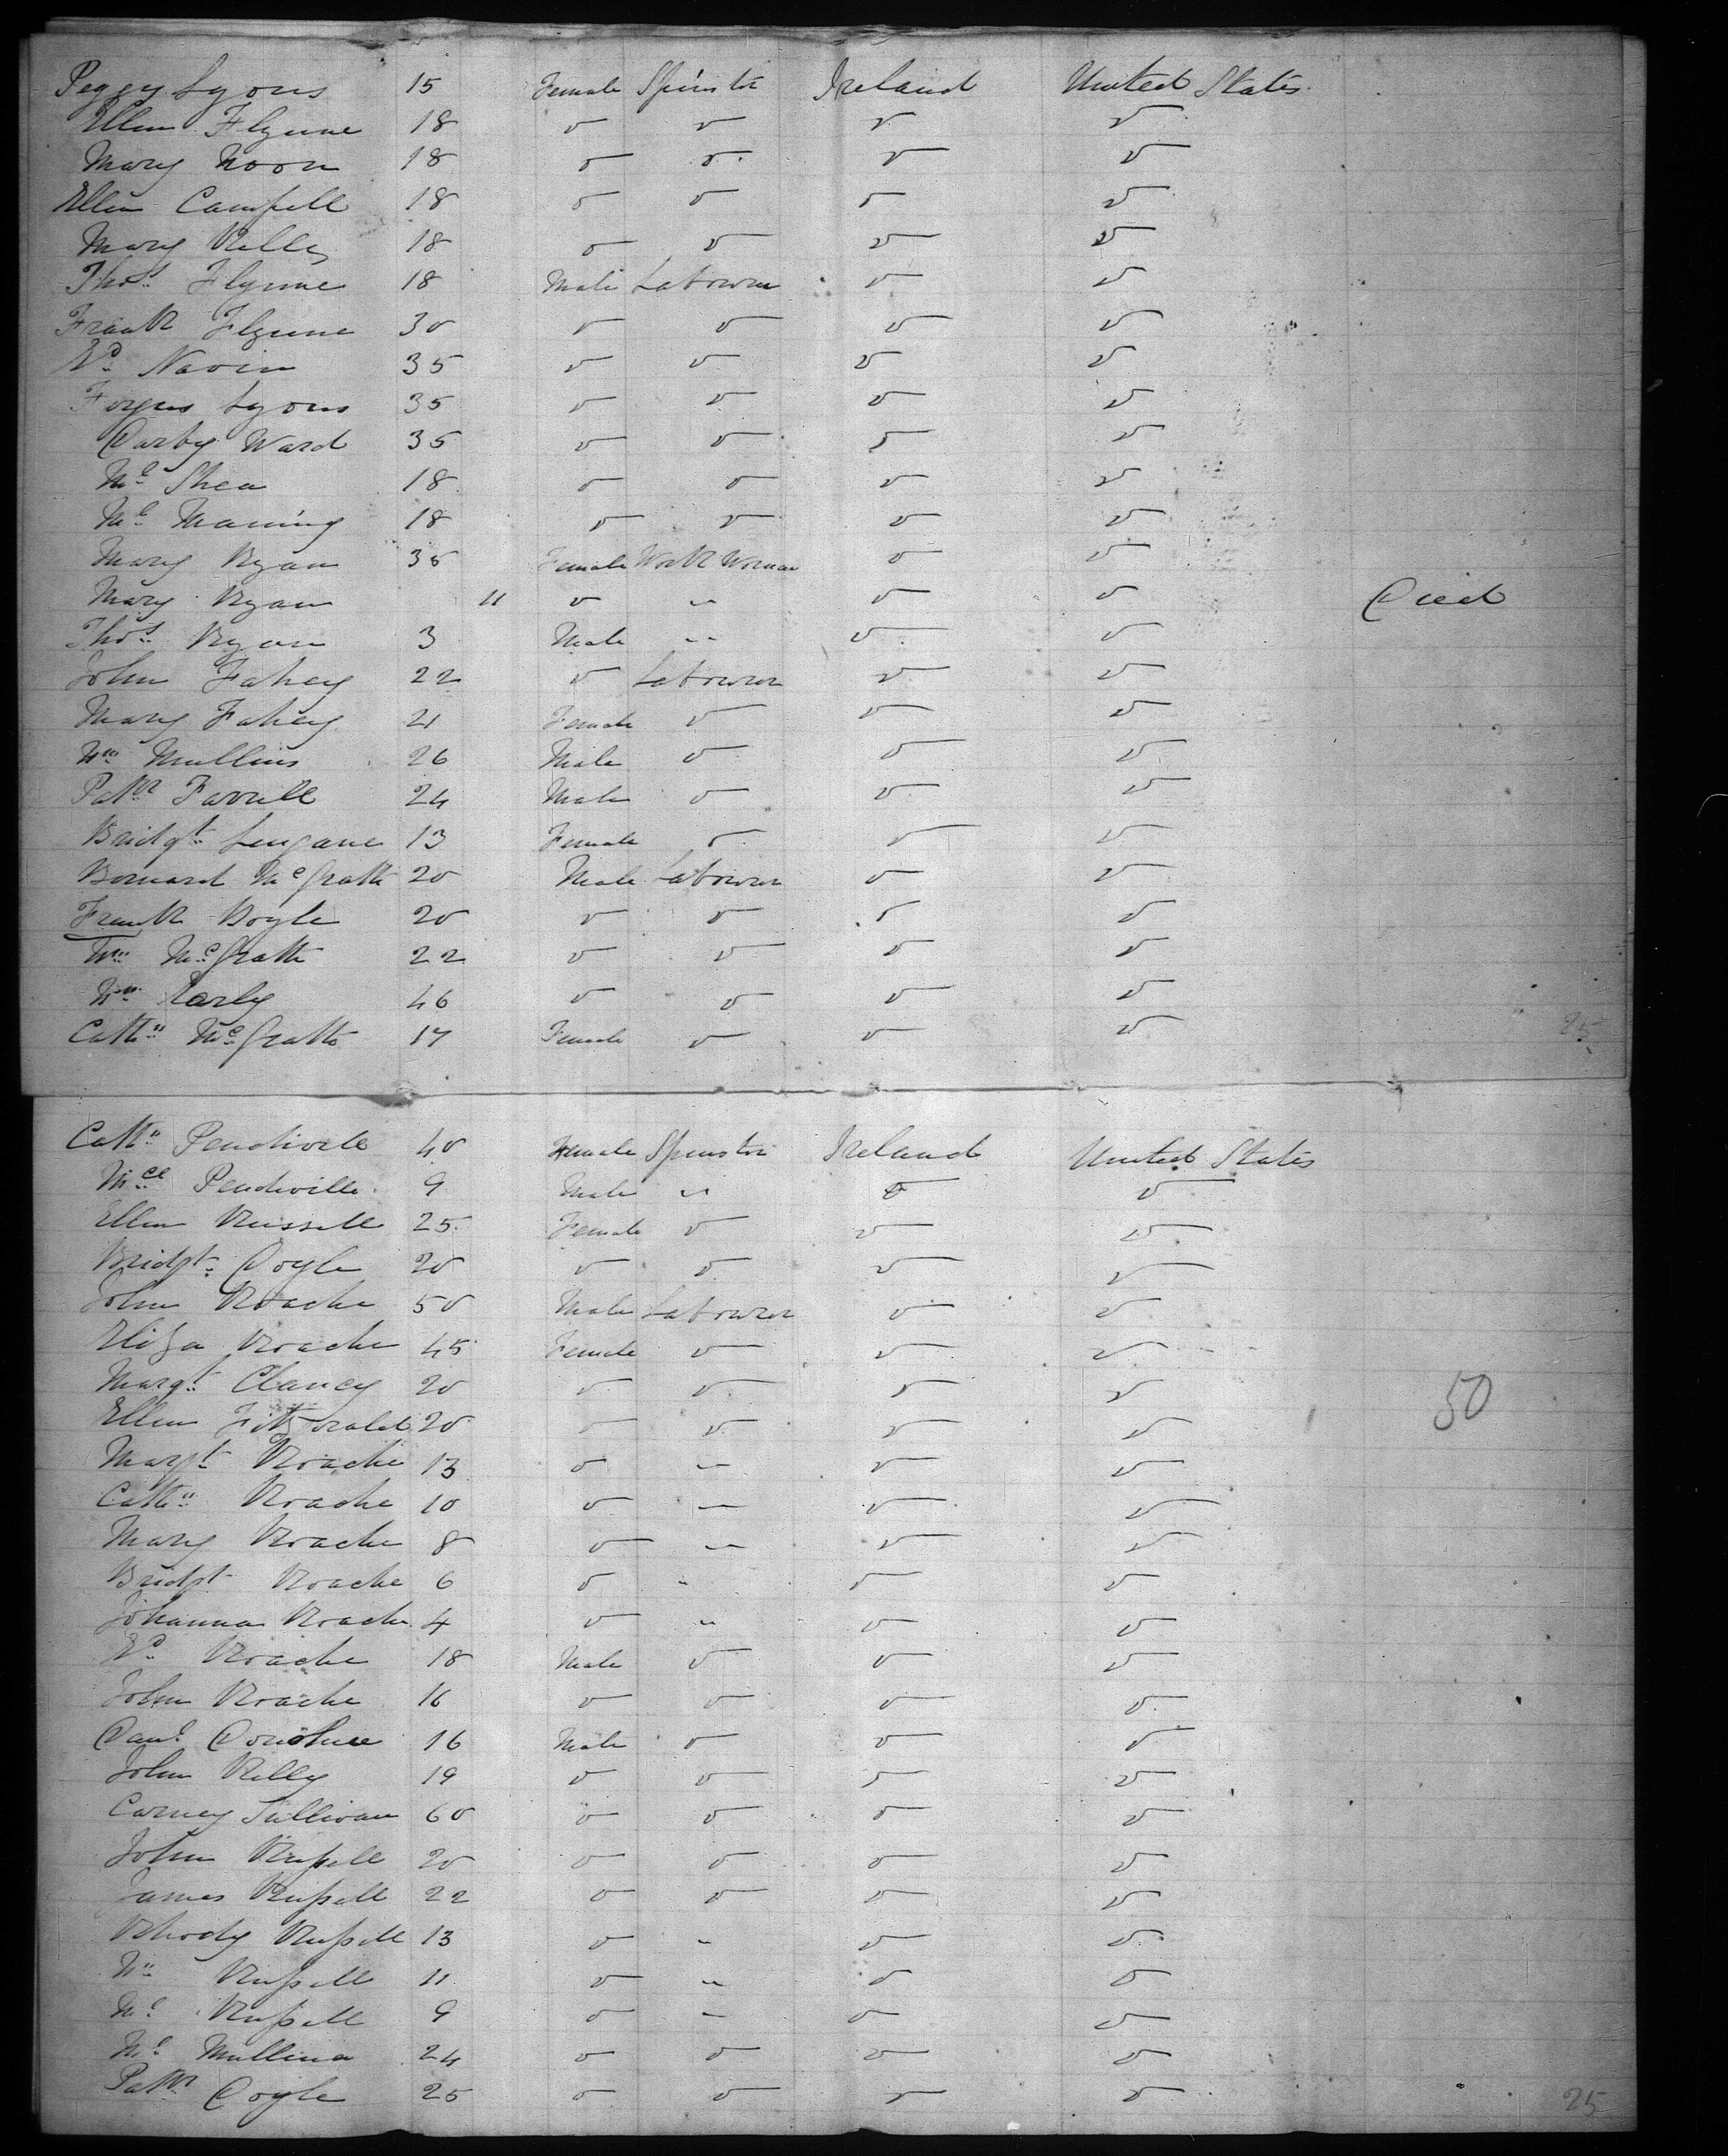 Peggy Lyons 15 Female Spinster Ireland United States
Ellen Flynne 18 " " " "
Mary Noon 18 " " " "
Ellen Campell 18 " " " "
Mary Kelly 18 " " " "
Thos. Flynne 18 Male Labourer " "
Frank Flynne 30 " " " "
Navin 35 " " " "
Lyons 35 " " " "
Darby Ward 35 " " " "
Ml. Shea 18 " " " "
Ml. Maning 18 " " " "
Mary Ryan 35 Female Work Woman " "
Mary Ryan 11 " " " " Died
Thos. Ryan 3 Male " " "
John Fahey 22 " Labourer " "
Mary Fahey 21 Female " " "
Wm. Mullins 26 Male " " "
Patk. Farrell 24 Male " " "
Bridgt. 13 Female " " "
Bernard McGrath 20 Male Labourer " "
Frank Boyle 20 " " " "
Wm. McGrath 22 " " " "
Wm. Early 46 " " " "
Cathn. McGrath 17 Female " " "
25
Cathn. 40 Female Spinster Ireland United States
Mcl. 9 Male " " "
Ellen Russell 25 Female " " "
Bridgt. Doyle 20 " " " "
John Roache 50 Male Labourer " "
Eliza Roache 45 Female " " "
Margt. Clancy 20 " " " "
50
Ellen 20 " " " "
Margt. Roache 13 " " " "
Cathn. Roache 10 " " " "
Mary Roache 8 " " " "
Bridgt. Roache 6 " " " "
Johanna Roache 4 " " " "
Roache 18 Male " " "
John Roache 16 " " " "
Danl. Donohue 16 Male " " "
John Kelly 19 " " " "
Carney Sullivan 60 " " " "
John Russell 20 " " " "
James Russell 22 " " " "
Rhody Russell 13 " " " "
Wm. Russell 11 " " " "
Ml. Russell 9 " " " "
Ml. Mullina 24 " " " "
Patk. Doyle 25 " " " "
25